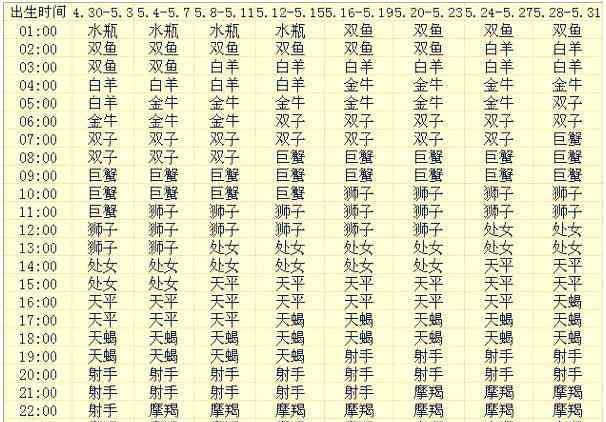 出生时间 4.30-5.3 5.4-5.7 5.8-5.11 5.12-5.15 5.16-5.19 5.20-5.23 5.24-5.27 5.28-5.31
01:00 水瓶 水瓶 水瓶 水瓶 双鱼 双鱼 双鱼 双鱼
02:00 双鱼 双鱼 双鱼 双鱼 双鱼 双鱼 白羊 白羊
03:00 双鱼 双鱼 白羊 白羊 白羊 白羊 白羊 白羊
04:00 白羊 白羊 白羊 白羊 金牛 金牛 金牛 金牛
05:00 白羊 金牛 金牛 金牛 金牛 金牛 金牛 双子
06:00 金牛 金牛 金牛 双子 双子 双子 双子 双子
07:00 双子 双子 双子 双子 双子 双子 双子 巨蟹
08:00 双子 双子 双子 巨蟹 巨蟹 巨蟹 巨蟹 巨蟹
09:00 巨蟹 巨蟹 巨蟹 巨蟹 巨蟹 巨蟹 巨蟹 巨蟹
10:00 巨蟹 巨蟹 巨蟹 巨蟹 狮子 狮子 狮子 狮子
11:00 巨蟹 狮子 狮子 狮子 狮子 狮子 狮子 狮子
12:00 狮子 狮子 狮子 狮子 狮子 狮子 处女 处女
13:00 狮子 狮子 处女 处女 处女 处女 处女 处女
14:00 处女 处女 处女 处女 处女 处女 天平 天平
15:00 处女 处女 天平 天平 天平 天平 天平 天平
16:00 天平 天平 天平 天平 天平 天平 天平 天蝎
17:00 天平 天平 天平 天蝎 天蝎 天蝎 天蝎 天蝎
18:00 天蝎 天蝎 天蝎 天蝎 天蝎 天蝎 天蝎 天蝎
19:00 天蝎 天蝎 天蝎 天蝎 射手 射手 射手 射手
20:00 射手 射手 射手 射手 射手 射手 射手 射手
21:00 射手 射手 射手 射手 射手 摩羯 摩羯 摩羯
22:00 射手 摩羯 摩羯 摩羯 摩羯 摩羯 摩羯 摩羯